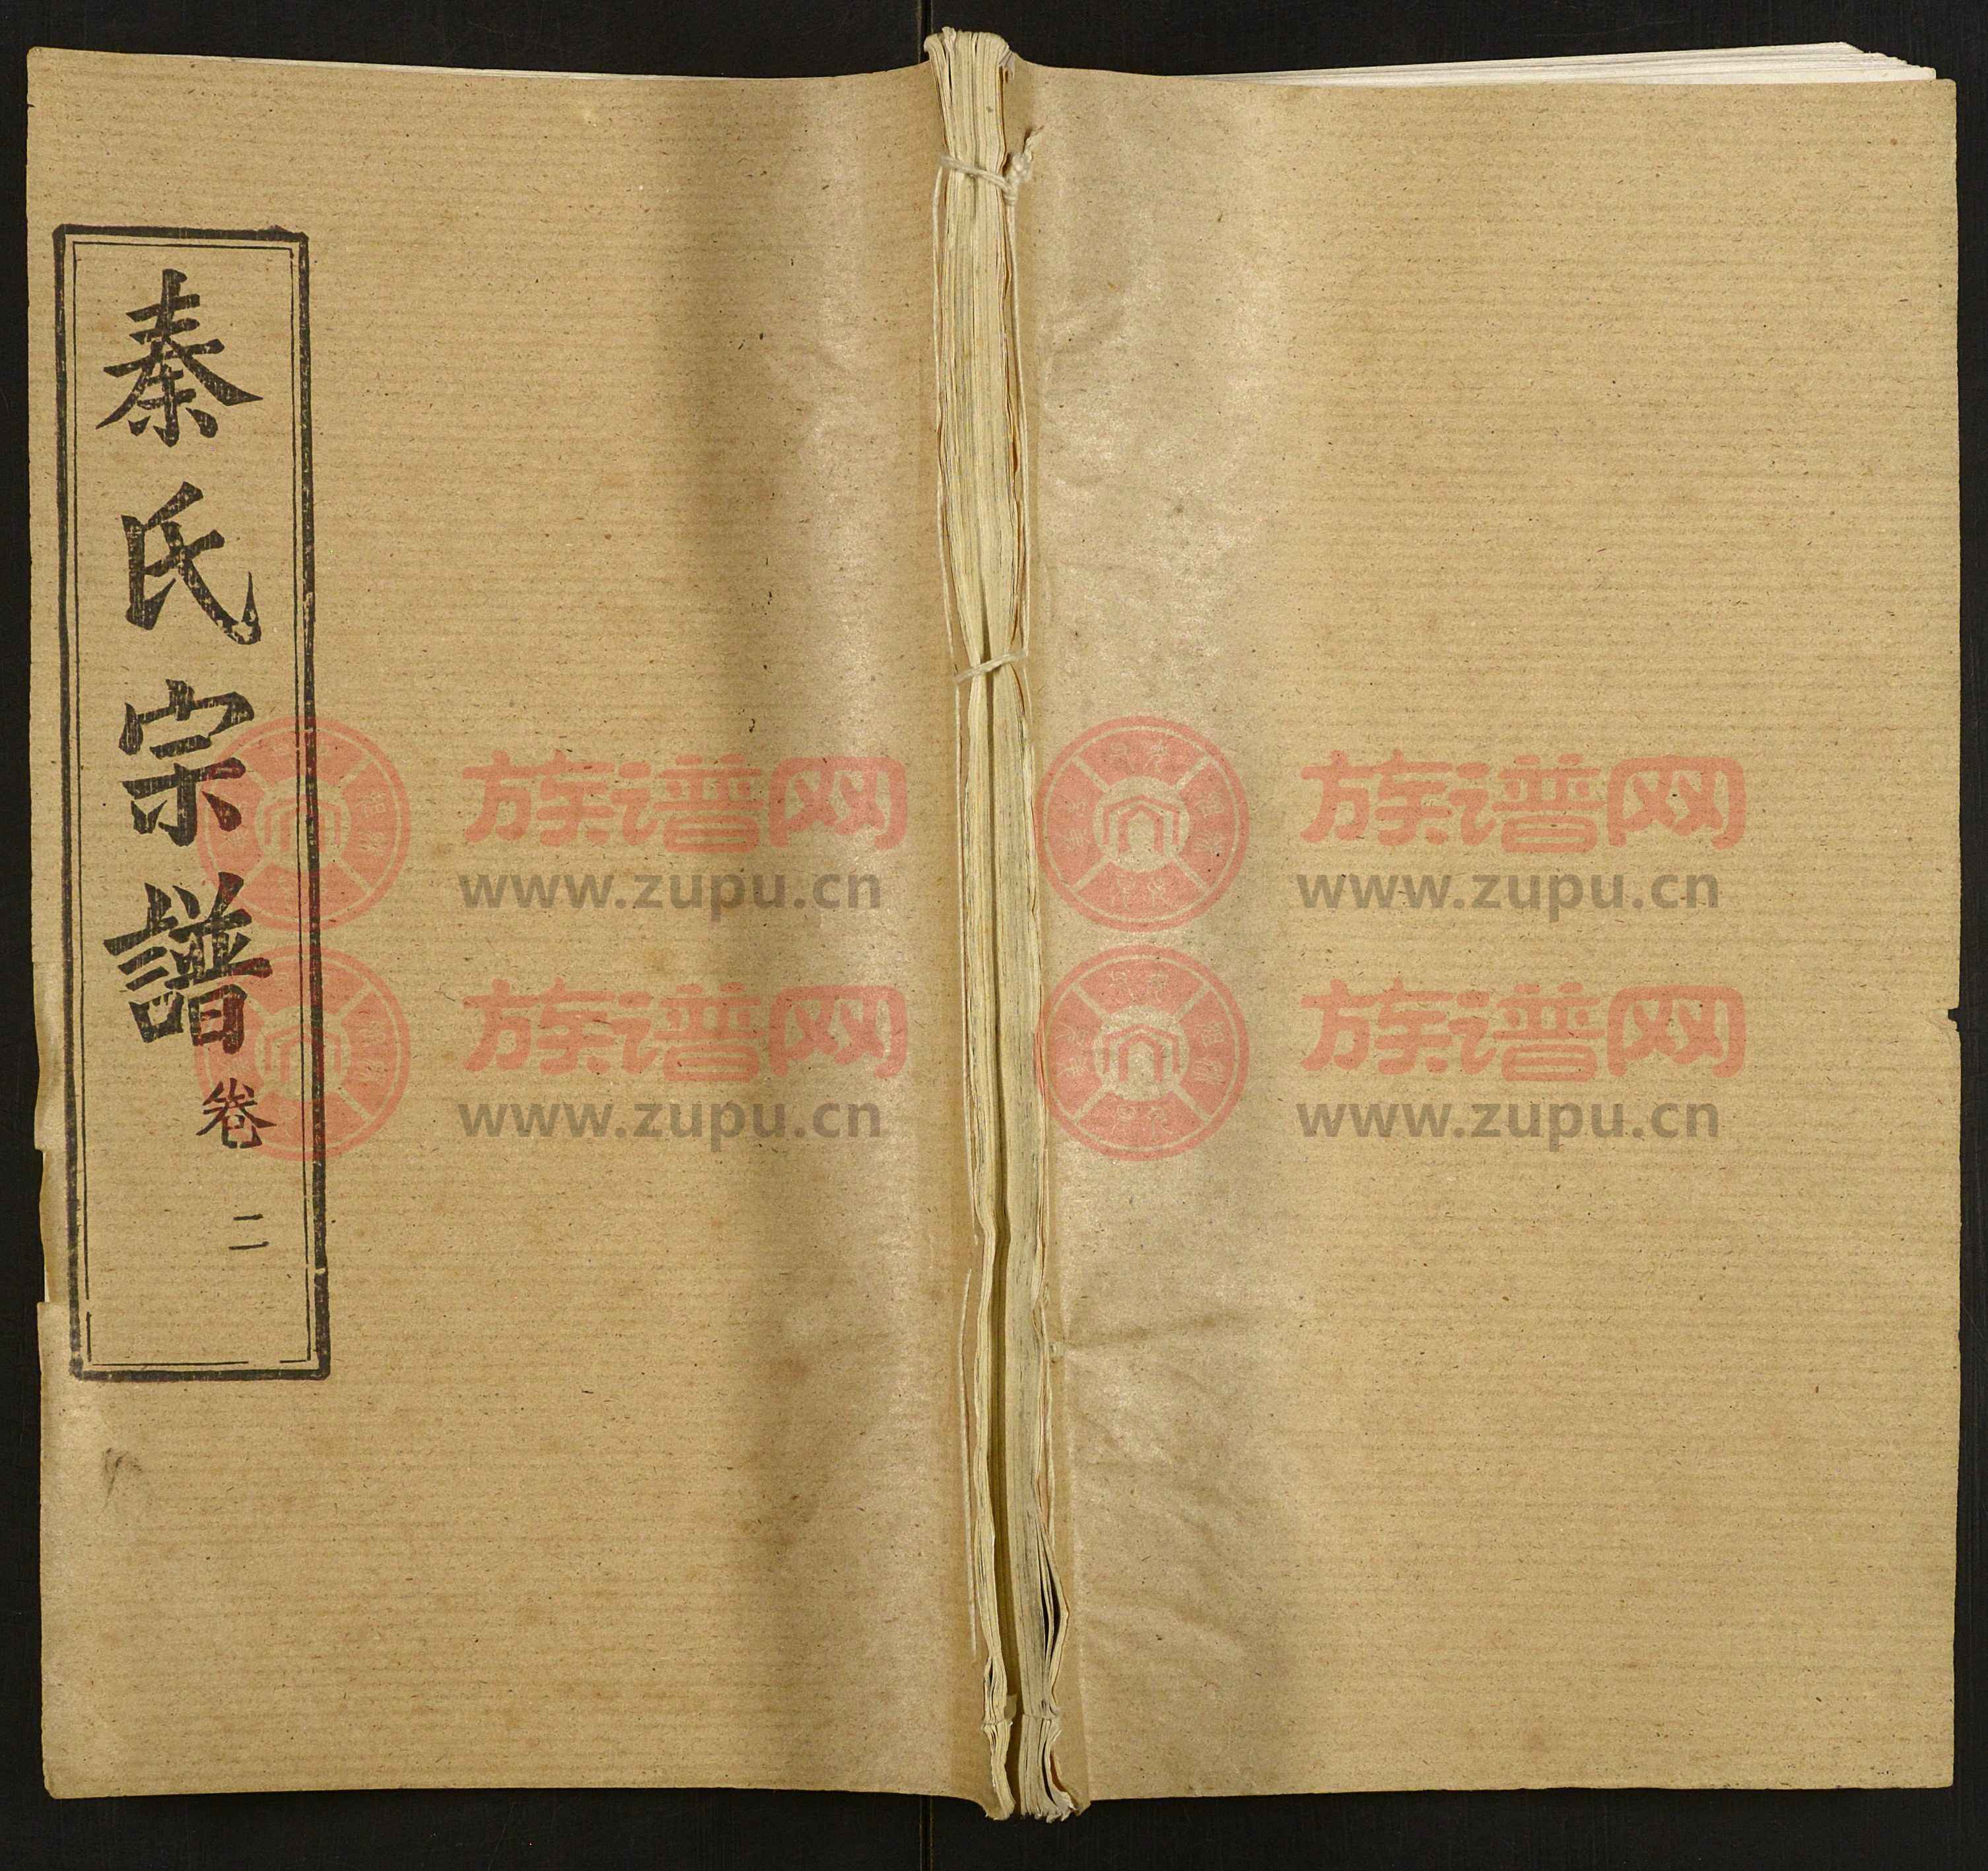 秦氏宗譜
卷二
族谱网
www.zupu.cn
族谱网
www.zupu.cn
族谱网
www.zupu.cn
族谱网
www.zupu.cn